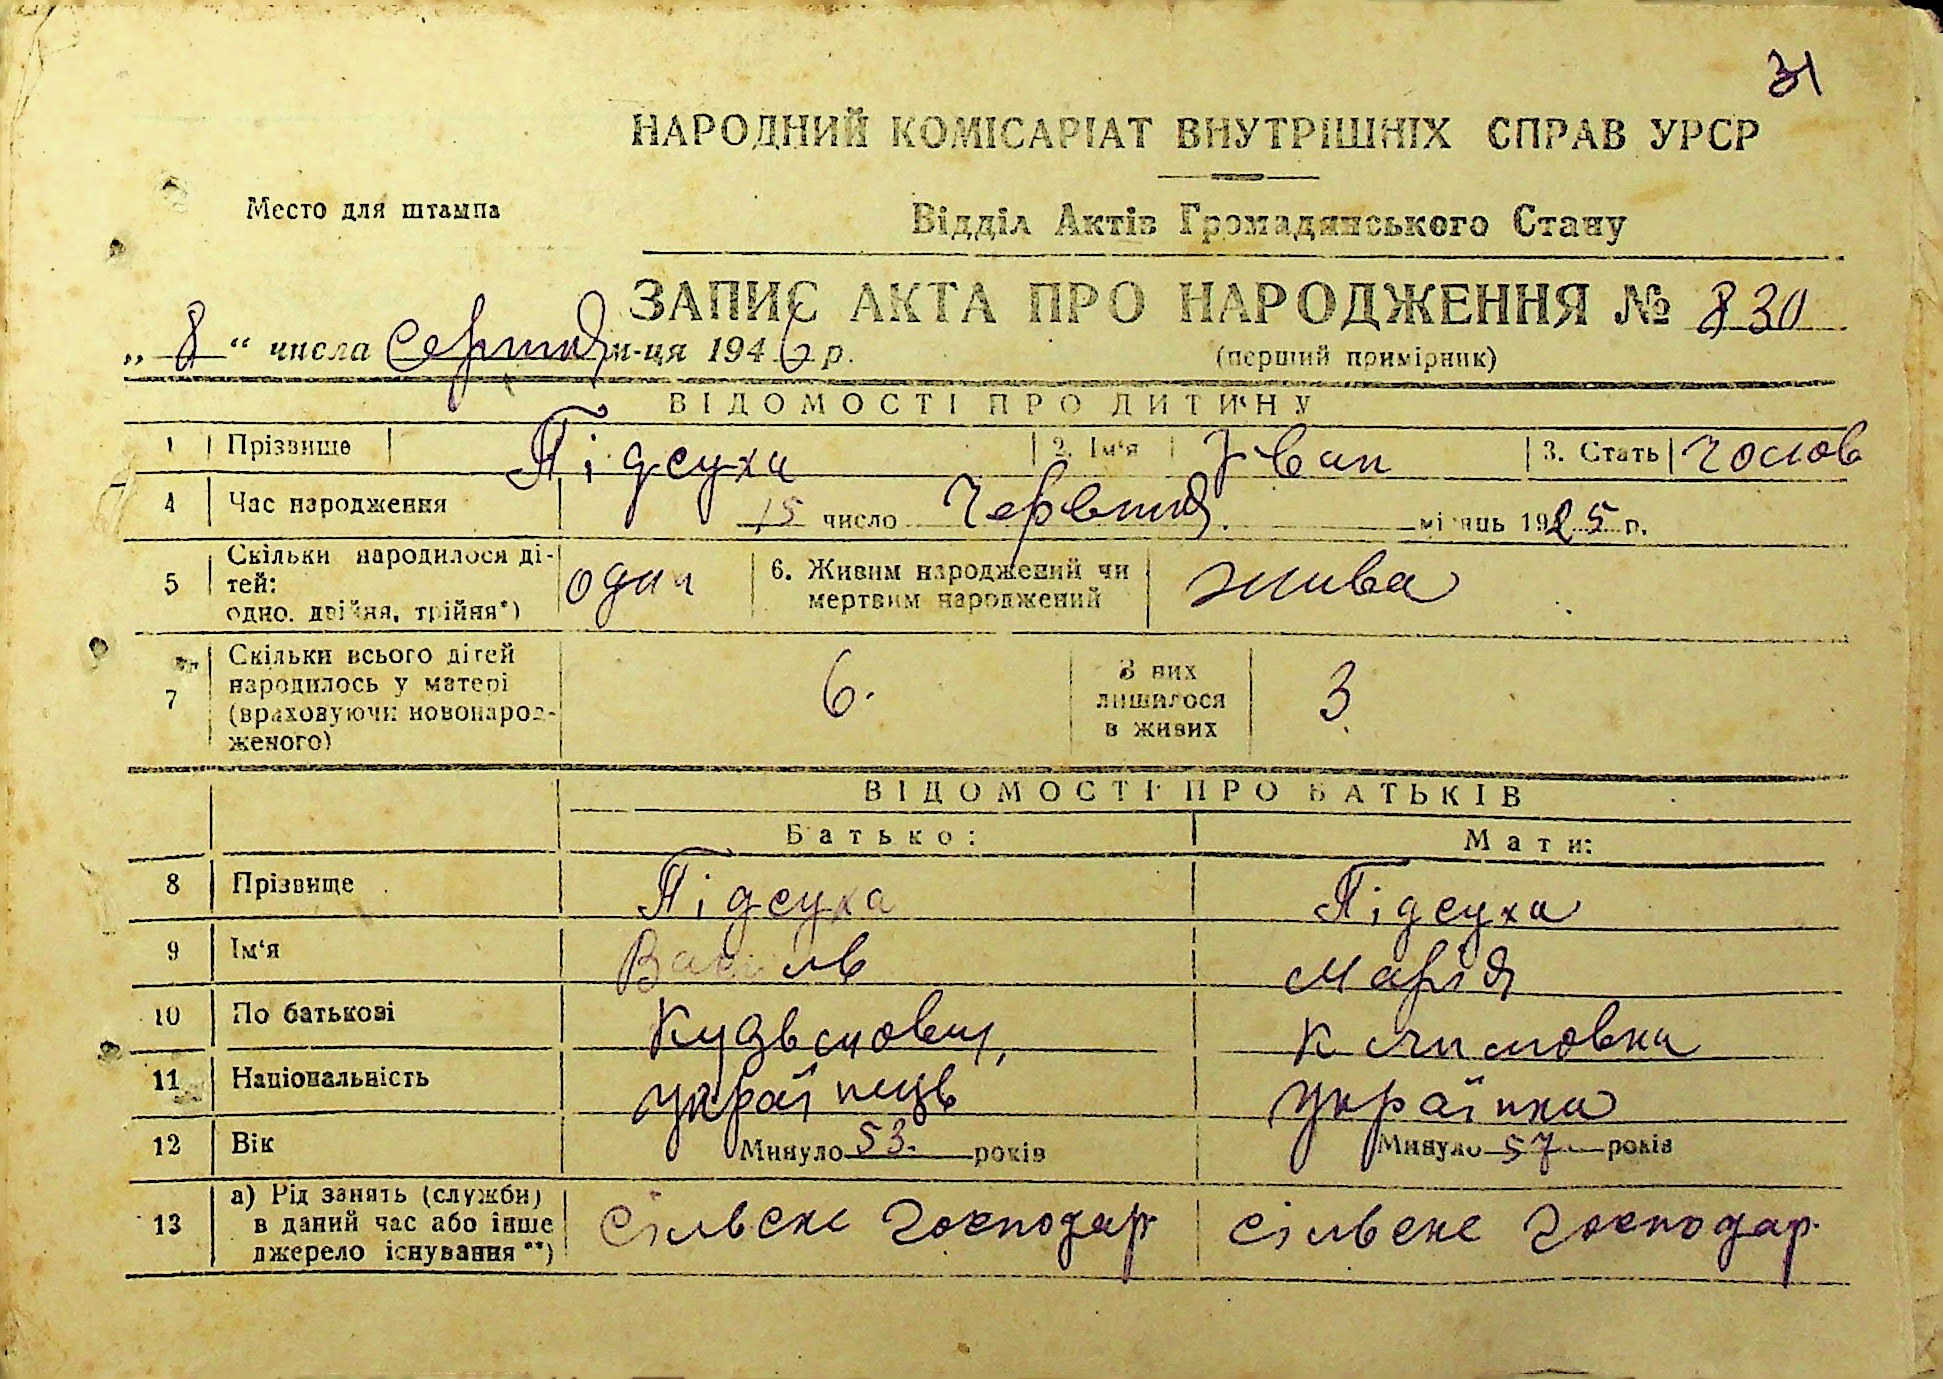 31
НАРОДНИЙ КОМІСАРІАТ ВНУТРІШНІХ СПРАВ УРСР
Место для штампа
Відділ Актів Громадянського Стану
ЗАПИС АКТА ПРО НАРОДЖЕННЯ № 830
„ 8 “ числа серпня м-ця 1946 р.
(перший примірник)
ВІДОМОСТІ ПРО ДИТИНУ
1 Прізвище Підсуха 2. Ім'я Іван 3. Стать чолов
4 Час народження 15 число Червня місяць 1925 р.
5 Скільки народилося ді-
тей:
одно, двійня, трійня*) один
6. Живим народжений чи
мертвим народжений жива
7 Скільки всього дітей
народилось у матері
(враховуючи новонарод-
женого) 6.
З них
лишилося
в живих 3
ВІДОМОСТІ ПРО БАТЬКІВ
Батько: Мати:
8 Прізвище Підсуха Підсуха
9 Ім'я Василь Марія
10 По батькові Кузьмович, Климовна
11 Національність українець українка
12 Вік Минуло 53. років Минуло 57. років
13 а) Рід занять (служби)
в даний час або інше
джерело існування**)
сільске господар сільске господар.